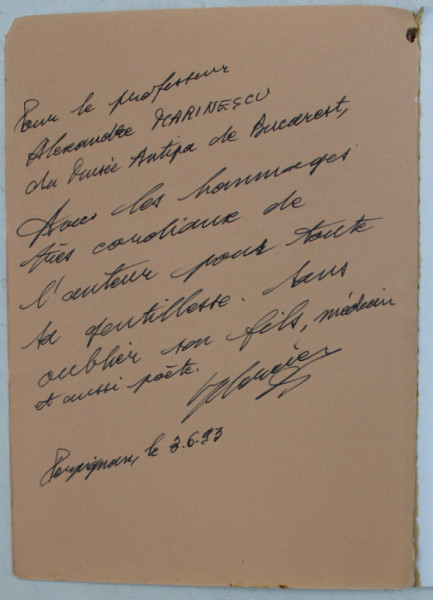 Pour le professeur
Alexandre MARINESCU
du Musée Antipa de Bucarest,
Avec les hommages
très cordiaux de
l'auteur pour toute
sa gentillesse. Sans
oublier son fils, médecin
et aussi poète.
Perpignan, le 3.6.93